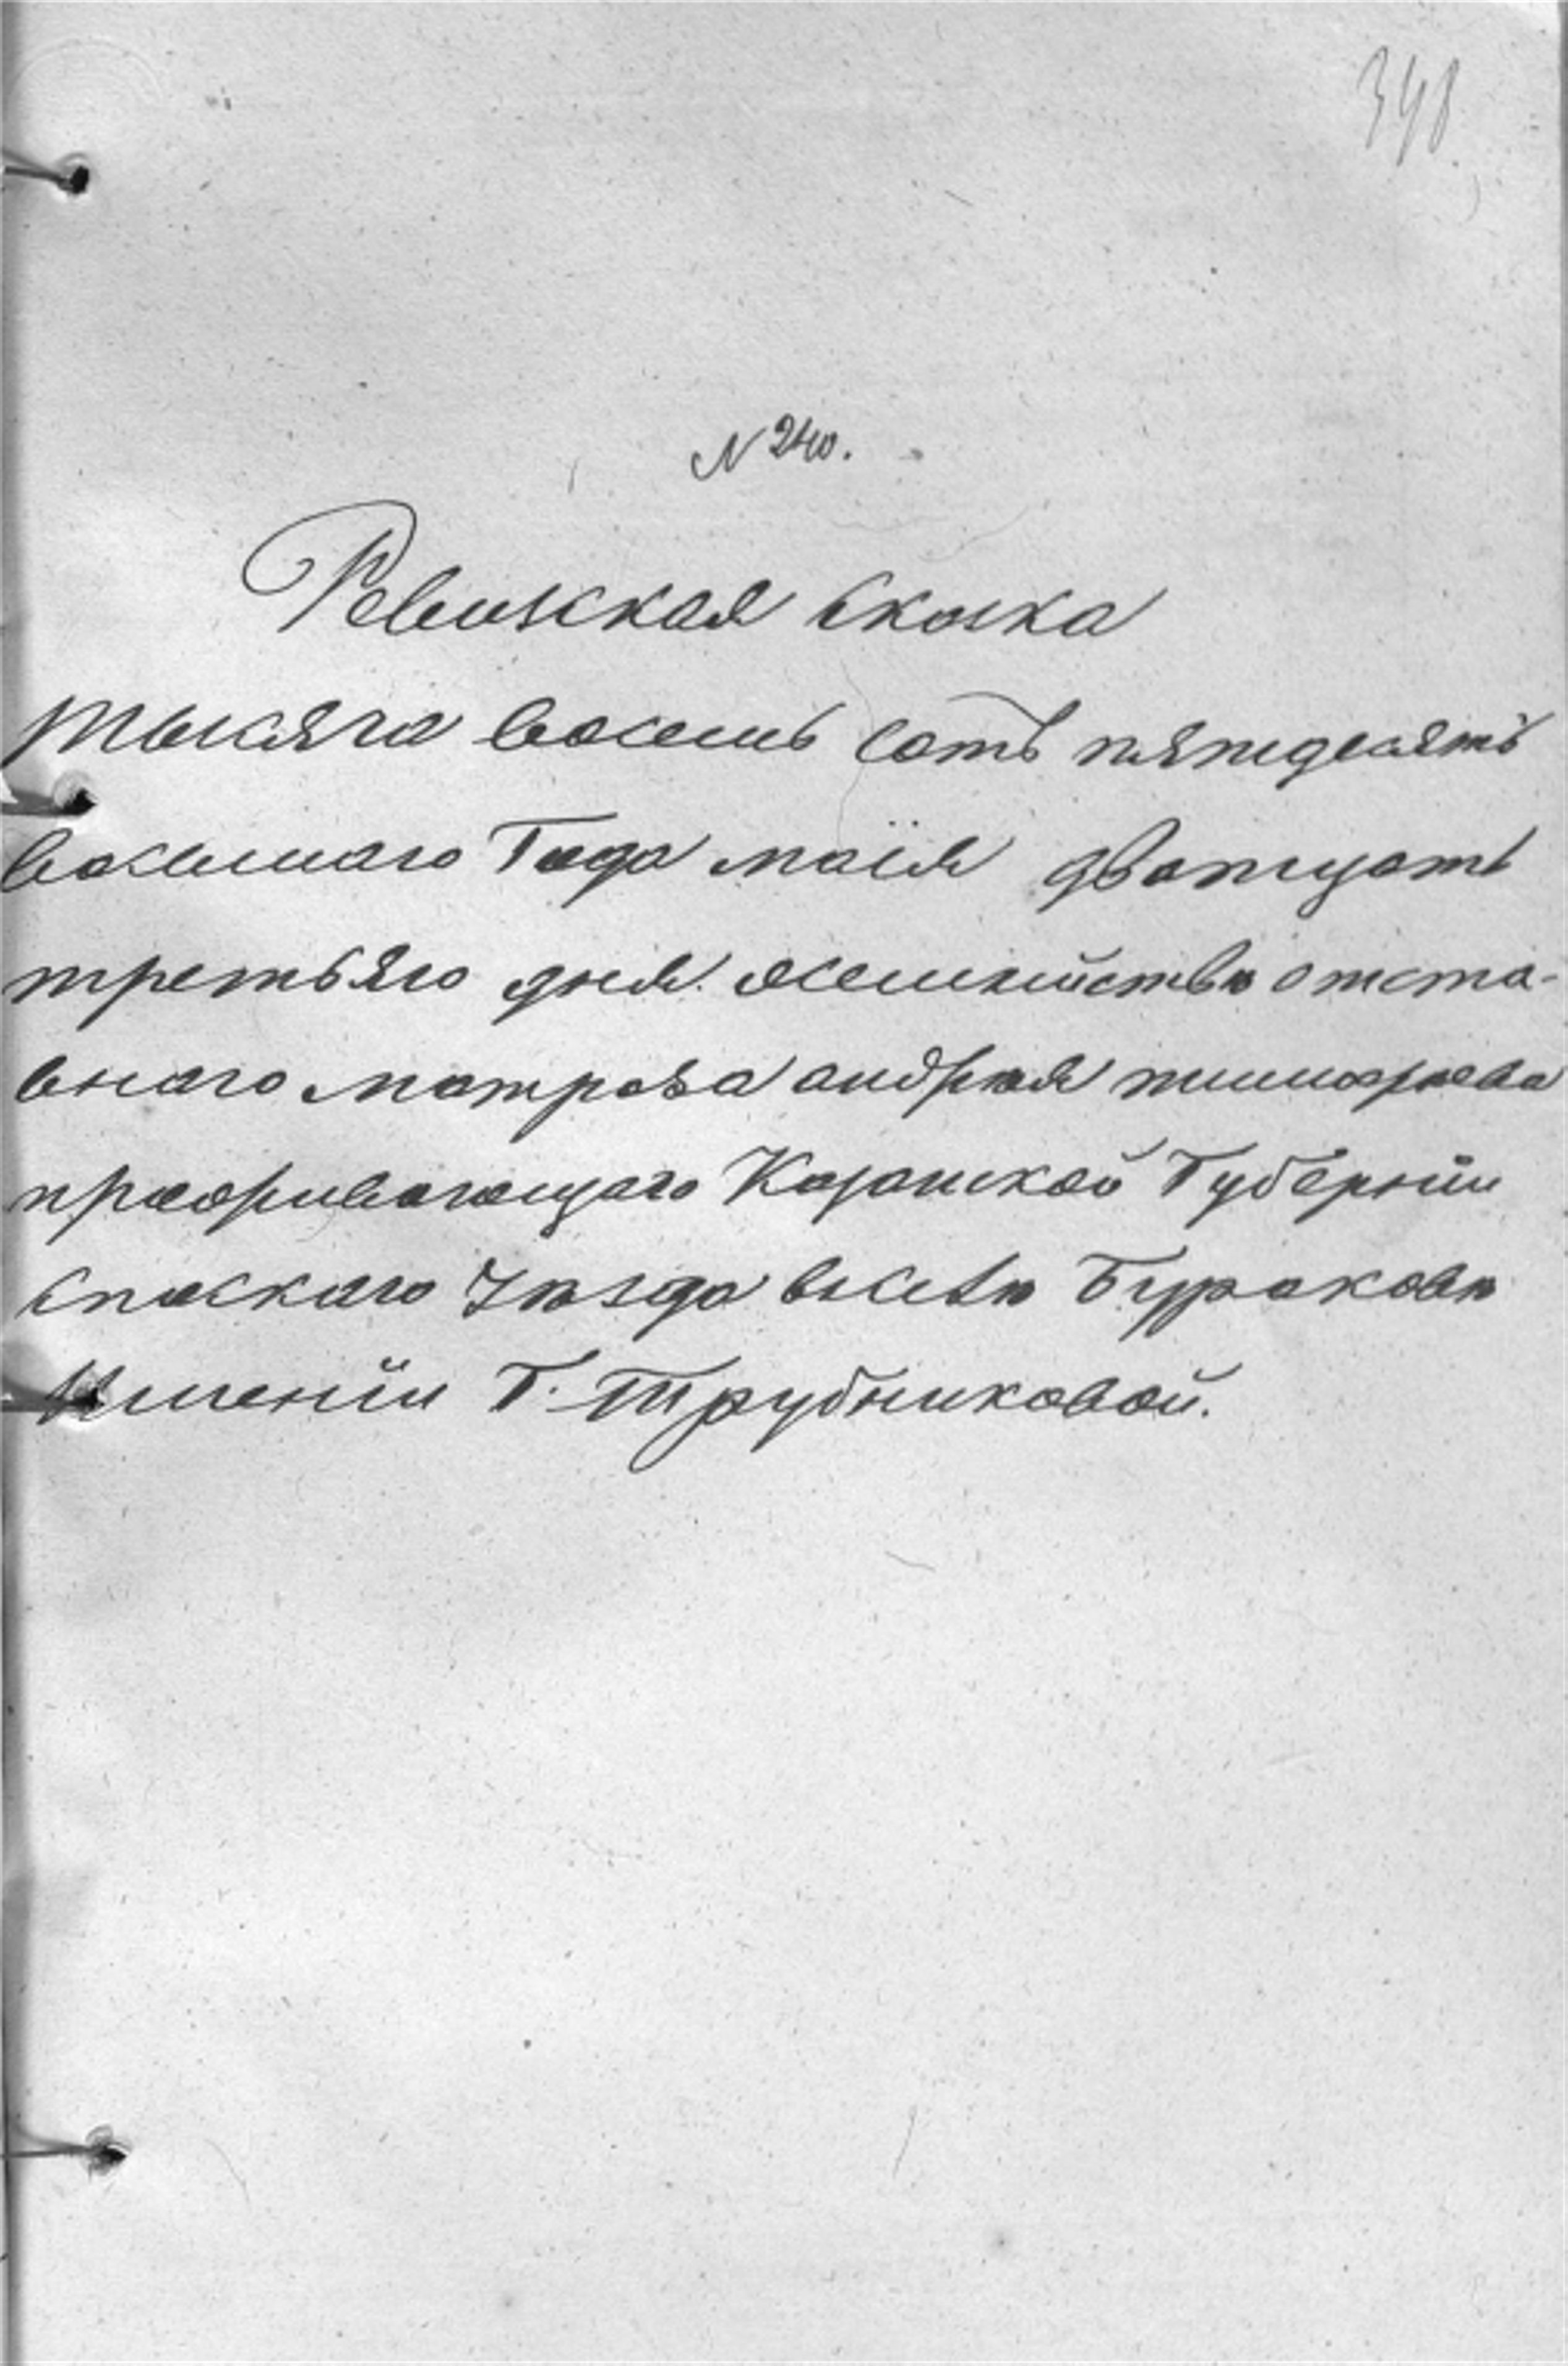 348
N 240.
Ревизская скаска
тысяча восемь сотъ пятьдесятъ
восьмаго Года маія дватцать
третьяго дня. о семействѣ отста-
внаго матроза андрея тимофеева
проживающаго Казанской Губерніи
спаскаго Уѣзда въ селѣ Бураковѣ
Имѣніи Г. Трубниковой.